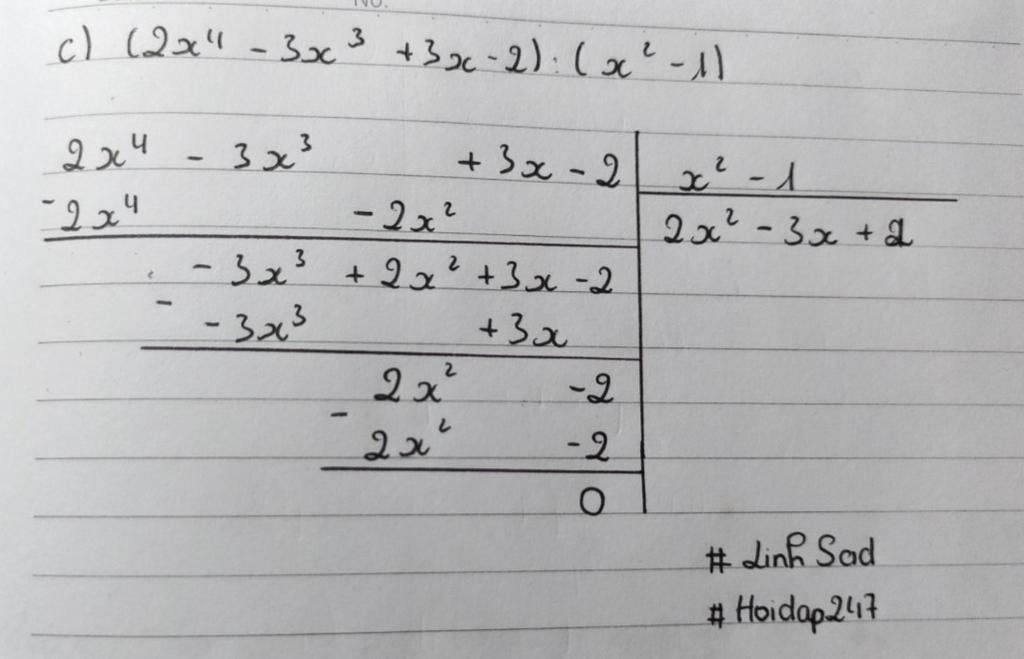 No.
c) (2x⁴ - 3x³ + 3x - 2) : (x² - 1)
2x⁴ - 3x³ + 3x - 2 | x² - 1
- 2x⁴ - 2x² | 2x² - 3x + 2
- 3x³ + 2x² + 3x - 2
- - 3x³ + 3x
2x² - 2
- 2x² - 2
0
# Linh Sad
# Hoidap247